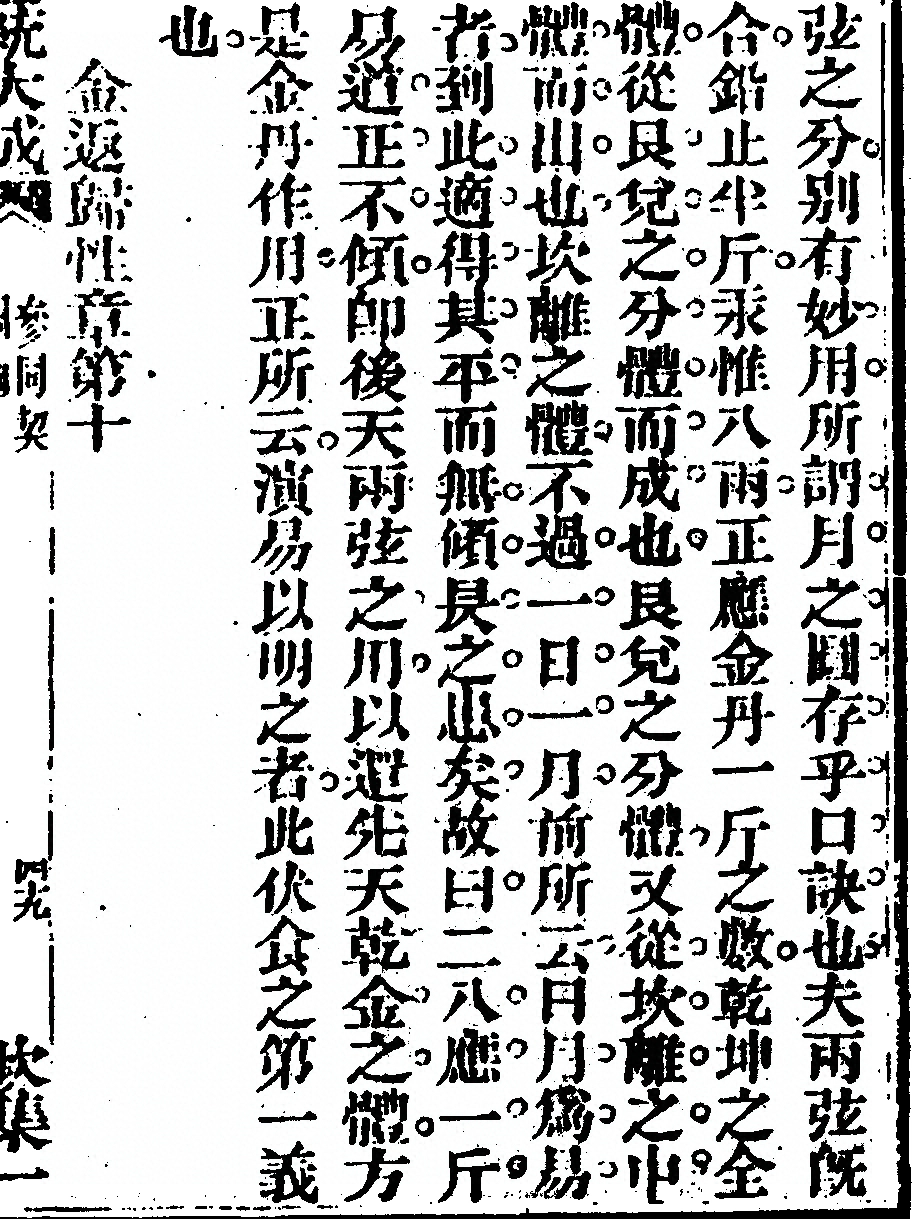 弦之分别有妙用所謂月之圓存乎口訣也夫兩弦既
合鉛止半斤汞惟八兩正應金丹一斤之數乾坤之全
體從艮兌之分體而成也艮兌之分體又從坎離之中
體而出也坎離之體不過一日一月前所云日月爲易
者到此適得其平而無傾昃之患矣故曰二八應一斤
易道正不傾卽後天兩弦之用以還先天乾金之體方
是金丹作用正所云演易以明之者此伏食之第一義
也
金返歸性章第十
統大成
參同契
四九
坎集一